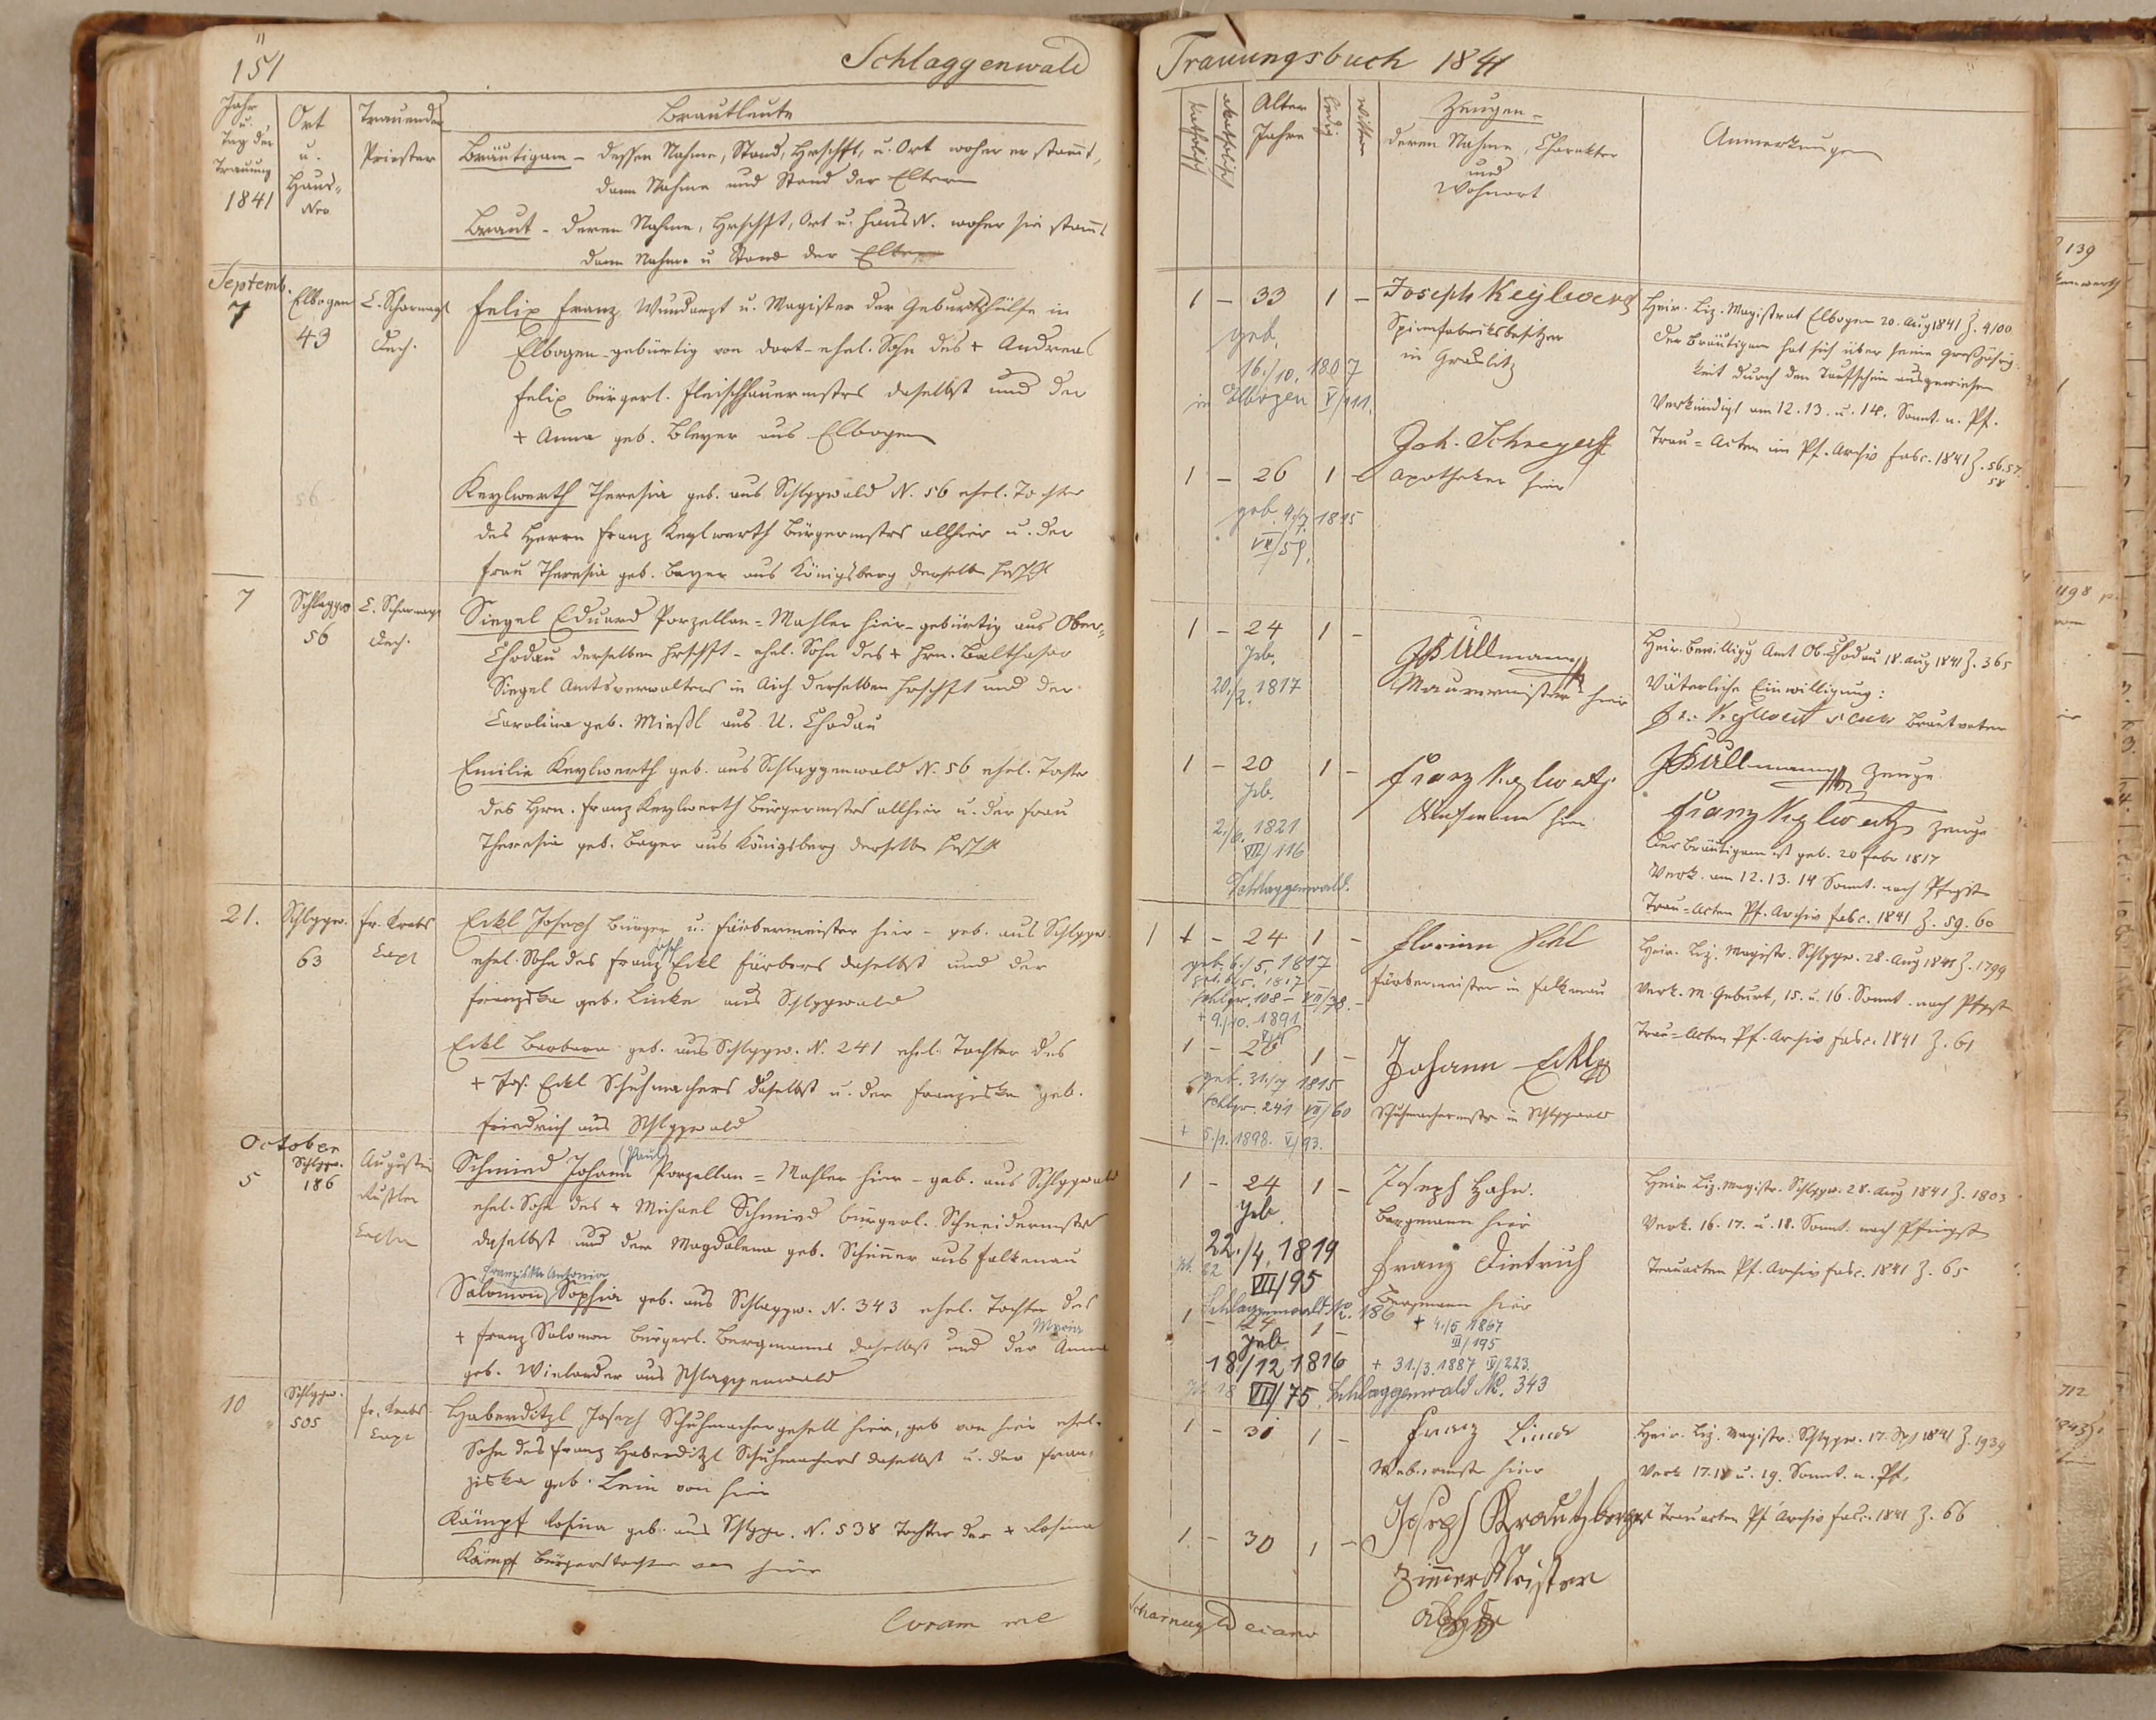 151
Schlaggenwald
Jahr
u.
Tag der
Trauung
1841
Ort
u.
Haus-
Nro
Trauender
Priester
Brautleute
Bräutigam - dessen Nahme, Stand, Hrschft, u. Ort woher er stam̄t,
dann Nahme und Stand der Eltern
Braut - deren Nahme, Hrschft, Ort u. Haus N. woher sie stam̄t
dann Nahme u Stand der Eltern
Septemb.
7
Elbogen
43
C. Scharnagl
Dech.
Felix Franz Wundarzt u. Magister der Geburtshülfe in
Elbogen - gebürtig von dort - ehel. Sohn des + Andreas
Felix bürgerl. Fleischhauermstrs daselbst und der
+ Anna geb. Bleyer aus Elbogen
56
Keylwerth Theresia geb. aus Schlggwald N. 56 ehel. Tochter
des Herrn Franz Keylwerth Bürgermstrs allhier u. der
Frau Theresia geb. Bayer aus Königsberg derselben Hrschft
7
Schlaggw
56
C. Scharnagl
Dech.
Siegel Eduard Porzellan = Mahler hier - gebürtig aus Ober-
Chodau derselben Hrschft - ehel. Sohn des + Hrn. Balthasar
Siegel Amtsverwalters in Aich derselben Hrschft und der
Carolina geb. Mießl aus U. Chodau
Emilie Keylwerth geb. aus Schlaggenwald N. 56 ehel. Tochter
des Hrn. Franz Keylwerth Bürgermstrs allhier u. der Frau
Theresia geb. Bayer aus Königsberg derselben Hrschft
21.
Schlggw.
63
Fr. Krebs
Capl
Eckl Joseph Bürger u. Färbermeister hier - geb. aus Schlggw.
Josef
ehel. Sohn des Franz Eckl Färbers daselbst und der
Franziska geb. Linke aus Schlggwald
Eckl Barbara geb. aus Schlggw. N. 241 ehel. Tochter des
+ Jos. Eckl Schuhmachers daselbst u. der Franziska geb.
Friedrich aus Schlggwald
October
5
Schlggw.
186
Augustin
(Paul)
Schmied Johann Porzellan = Mahler hier - geb. aus Schlggwald
ehel. Sohn des + Michael Schmied bürgerl. Schneidermstrs
daselbst und der Magdalena geb. Schin̄er aus Falkenau
Franziska Antonia
Salomon Sophia geb. aus Schlaggw. N. 343 ehel. Tochter des
Maria
+ Franz Salomon bürgerl. Bergmanns daselbst und der Anna
geb. Wielander aus Schlaggenwald
10
Schlggw.
505
Fr. Krebs
Capl
Haberditzl Joseph Schuhmachergesell hier, geb von hier ehel.
Sohn des Franz Haberditzl Schuhmachers daselbst u. der Fran-
ziska geb. Lein von hier
Kämpf Rosina geb. aus Schlggw. N. 538 Tochter der + Rosina
Kämpf Bürgerstochter von hier
Coram me
Trauungsbuch 1841
katholisch
akatholisch
Alter
Jahre
ledig
Wittwer
Zeugen -
deren Nahme, Charakter
und
Wohnort
Anmerkungen
1 - 33 1 -
geb.
16./10. 1807
in Elbogen V/111.
Joseph Keylwerth
Spinnfabriksbesitzer
in Graslitz
Heir. Liz. Magistrat Elbogen 20. Aug 1841 Z. 4100
Der Bräutigam hat sich über seine Großjährig-
keit durch den Taufschein ausgewiesen
Verkündigt am 12. 13. u. 14. Sonnt. n. Pf.
Trau = Acten im Pf. Archiv Fasc. 1841 Z. 56.57.
58
1 - 26 1 -
geb. 4./7. 1815
VII/59.
Joh. Schreyer
Apotheker hier
1 - 24 1 -
Geb.
20./2. 1817
Ullmann
Maurermeister hier
Heir. Bewilligg Amt Ob. Chodau 18. Aug 1841 Z. 365
Väterliche Einwilligung:
Brautvater
Ullmann Zeuge
Franz Keylwerth Zeuge
Der Bräutigam ist geb. 20 Febr 1817
Verk. am 12. 13. 14 Sonnt. nach Pfngst
Trau = Acten Pf. Archiv Fasc. 1841 Z. 59. 60
1 - 20 1 -
Geb.
2./6. 1821
VII/116
Schlaggenwald.
Franz Keylwerth
hier
1 - 24 1 -
geb. 6./5. 1817
geb. 6./5. 1817
Schlggw. 108 - VII/78.
+ 9./10. 1891
Florian Eckl
Färbermeister in Falkenau
Heir. Liz. Magistr. Schlggw. 28. Aug 1841 Z. 1799
Verk. M. Geburt, 15. u. 16. Sonnt. nach Pfgst
Trau = Acten Pf. Archiv Fasc. 1841 Z. 61
1 - 26 1 -
geb. 31./7 1815
Schlgw. 241 VII/60
+ 5./1. 1898. V/93.
Johann Eckl
Schuhmachermstr in Schlggwald
1 - 24 1 -
Geb.
22./4. 1819
VIII/95
Schlaggenwald Nr. 186
Joseph Hahn.
Bergmann hier
Franz Dietrich
Bergmann hier
+ 4./5 1867
III/195
Heir. Liz. Magistr. Schlggw. 28. Aug 1841 Z. 1803
Verk. 16. 17. u. 18. Sonnt. nach Pfingst
Trauacten Pf. Archiv Fasc. 1841 Z. 65
1 - 24 1 -
Geb
18./12 1816
+ 31./3. 1887 IV/223.
VII/75. Schlaggenwald Nr. 343
1 - 31 1 -
Franz Linde
Webermstr hier
Heir. Liz. Magistr. Schlggw. 17. Spt 1841 Z. 1939
Verk 17. 18 u. 19. Sonnt. n. Pf.
Trauacten Pf Archiv Fasc. 1841 Z. 66
1. - 30 1 -
Joseph Krautzberger
Zim̄erMeister
Scharnagl Decano
139
1198
712